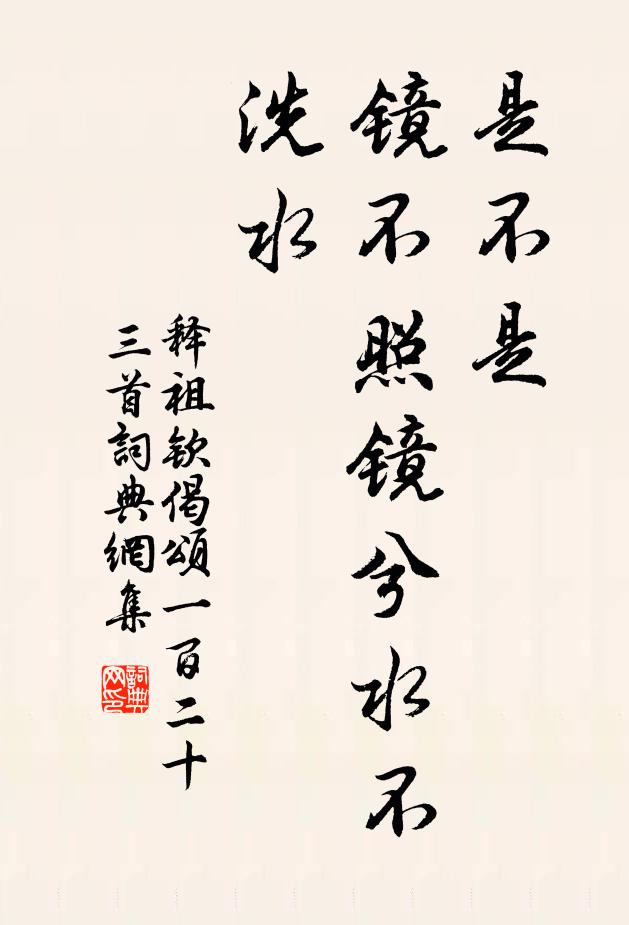 是不是
镜不照镜兮水不
洗水
释祖钦偈頌一百二十
三首詞典網集
詞典
网印